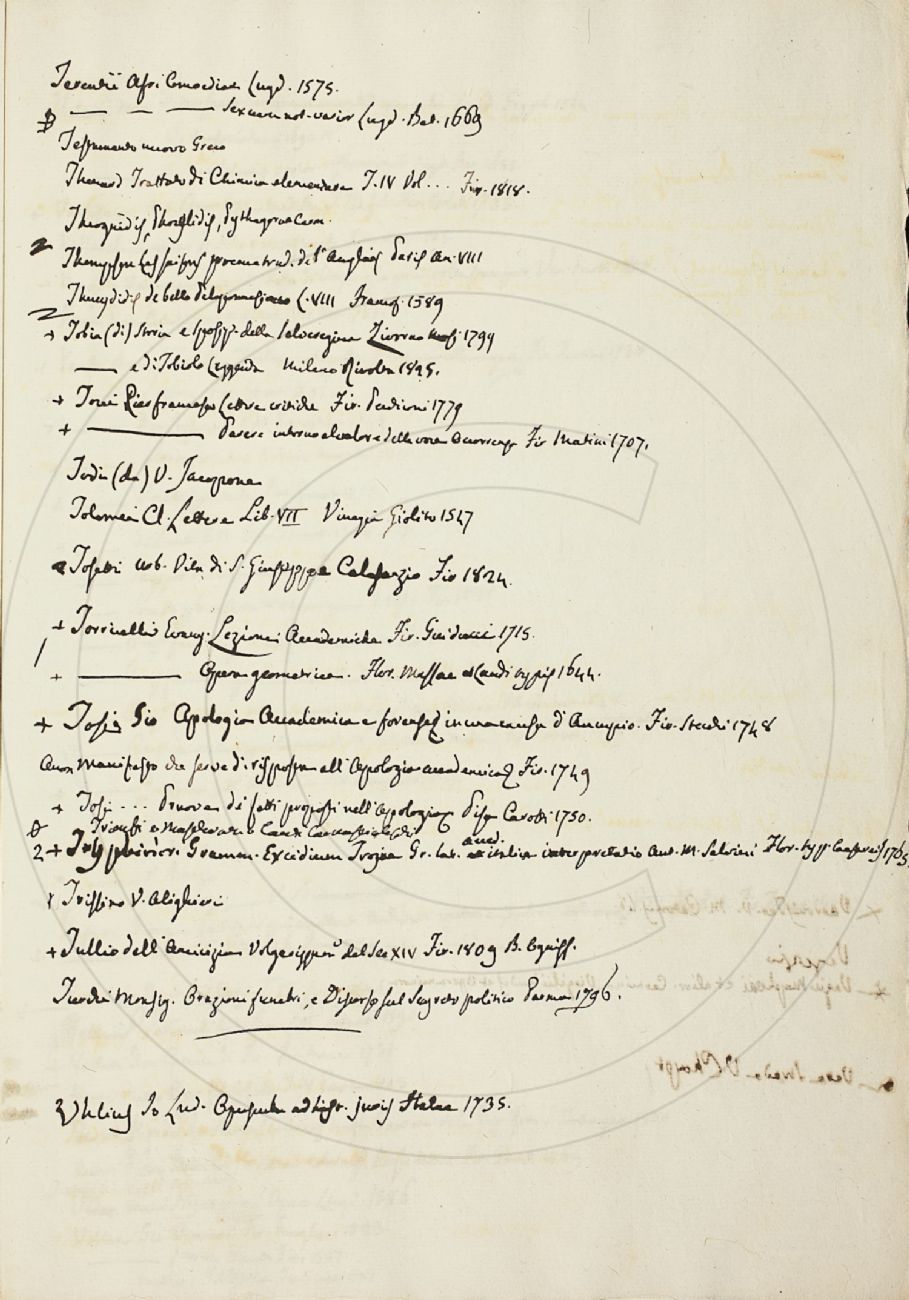 Terentii Afri Comoediae Lugd. 1575.
—— — —— Sex cum not. varior Lugd. Bat. 1669
Testamento nuovo Greco
Thenard Trattato di Chimica elementare T. IV Vol... Fir. 1818.
Theognidis, Phocylidis, Pythagorae Carm.
Thompson Les saisons poeme trad. de l'Anglais Paris An. VIII
Thucydidis de bello Peloponnesiaco L. VIII Francof. 1589
+ Tobia (di) Storia e sposiz. della Salveregina Livorno Masi 1799
—— e di Tobiolo Leggenda Milano Rivolta 1825.
+ Tocci Pier francesco Lettere critiche Fir. 1779
+ —— Parere intorno al valore della voce Occorrenza Fir Matini 1707.
Todi (da) V. Jacopone
Tolomei Cl. Lettere Lib. VII Vinegia Giolito 1547
Tosetti Urb. Vita di S. Giuseppe Calasanzio Fir 1824.
+ Torricelli Evang. Lezioni Accademiche Fir. Guiducci 1715.
+ —— Opera geometrica. Flor. Massae et Landi typis 1644.
+ Tosi Gio Apologia Accademica e forense in una causa d'Aucupio. Fir. Stecchi 1748
Anon Manifesto che serve di risposta all'Apologia accademica Fir. 1749
+ Tosi ... Prova de fatti proposti nell'Apologia Pisa Carotti 1750.
Trionfi e Mascherate o Canti Carnascialeschi
2 + Tryphiodori Gramm. Excidium Trojae Gr. lat. et italice interpretatio Ant. M. Salvini Flor. typ. 1765
Trissino V. Alighieri
+ Tullio dell'Amicizia Volgarizzam.º del Sec XIV Fir. 1809
Turchi Monsig. Orazioni funebri, e Discorso sul Segreto politico Parma 1796.
Io Lud. Opuscula ad hist. juris Halae 1735.